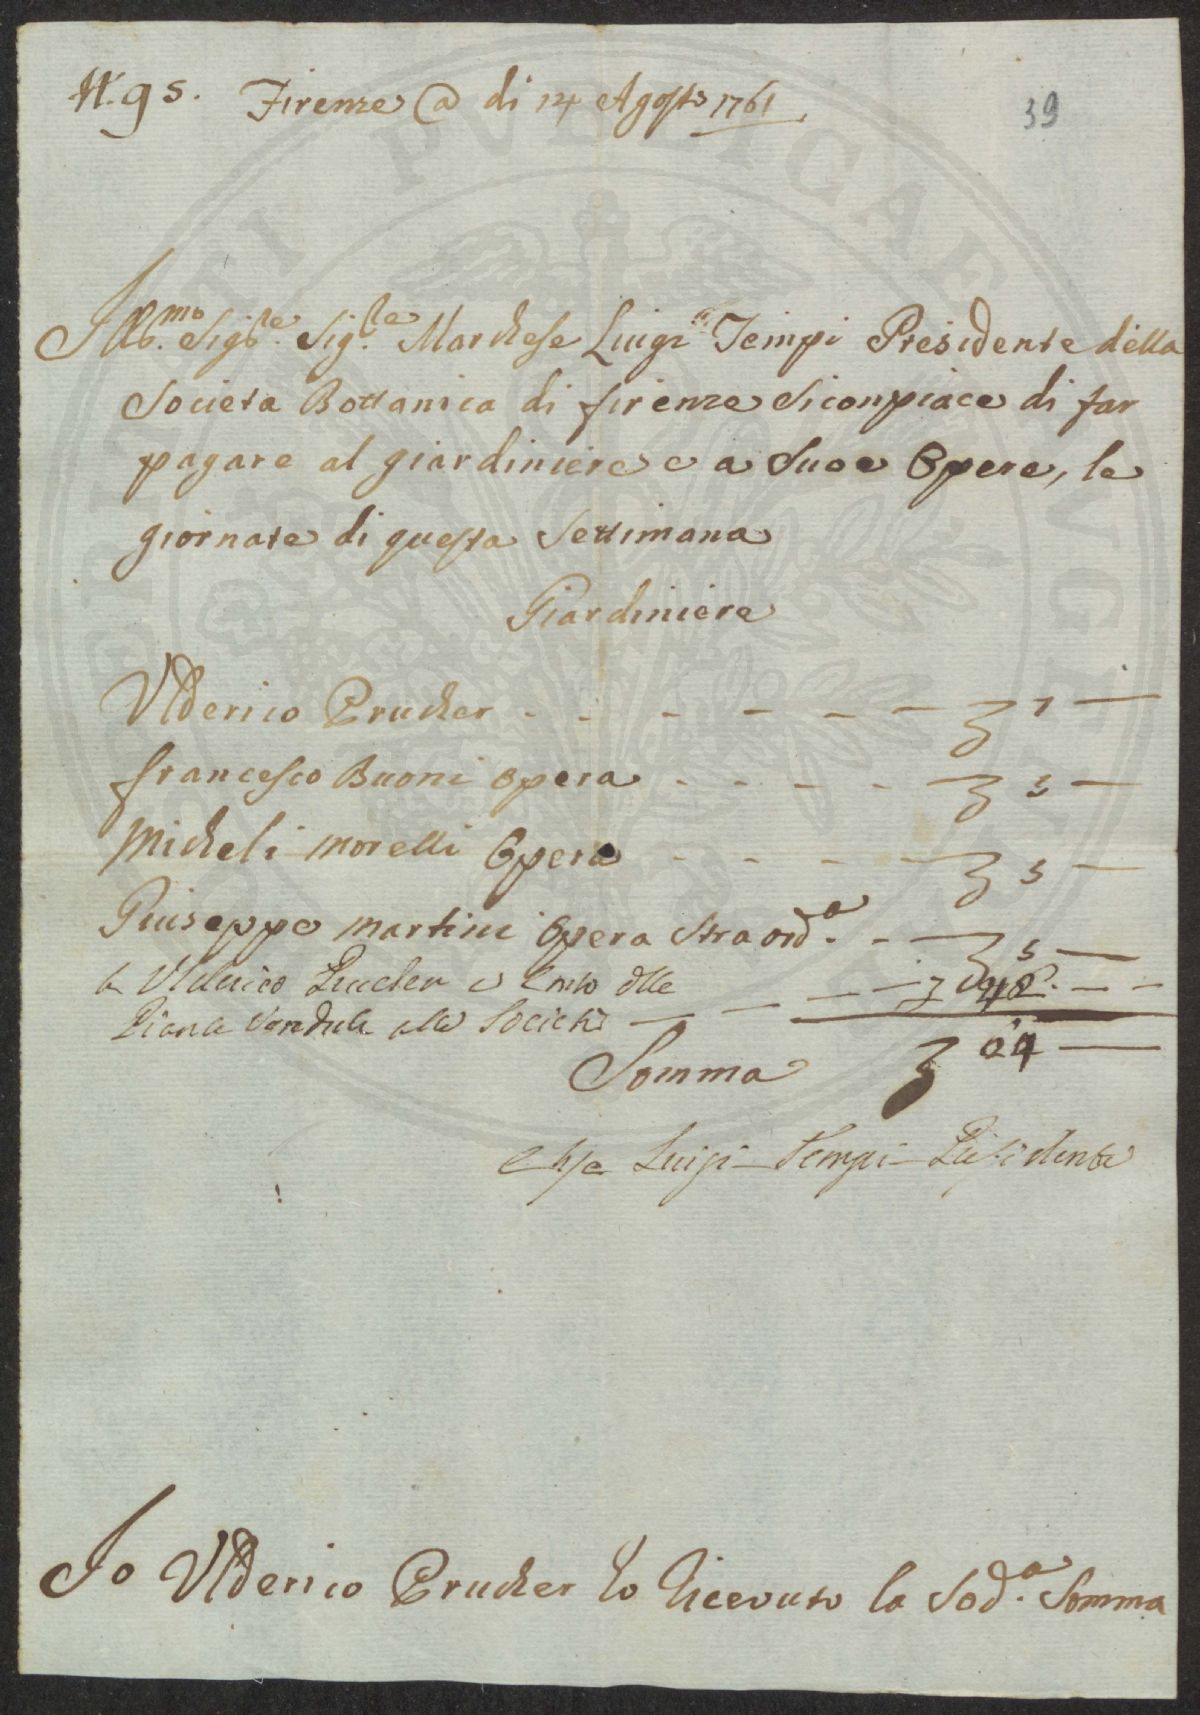 N. 95. Firenze @ di 14 Agosto 1761
39
Ill.mo Sig.re Sig.re Marchese Luigi Tempi Presidente della
Societa Bottanica di firenze Siconpiace di far
pagare al giardiniere e a Suoe Opere, le
giornate di questa Settimana
Giardiniere
Ulderico Prucher - - - - - - 7 —
francesco Buoni opera - - - - 5 —
Micheli morelli Opera - - - - 5 —
Giuseppe martini Opera Straord.a - - 5 —
a Ulderico Prucher
alla Società
Somma
Luigi Tempi Presidente
Io Ulderico Prucher ho Ricevuto la Sod.a Somma